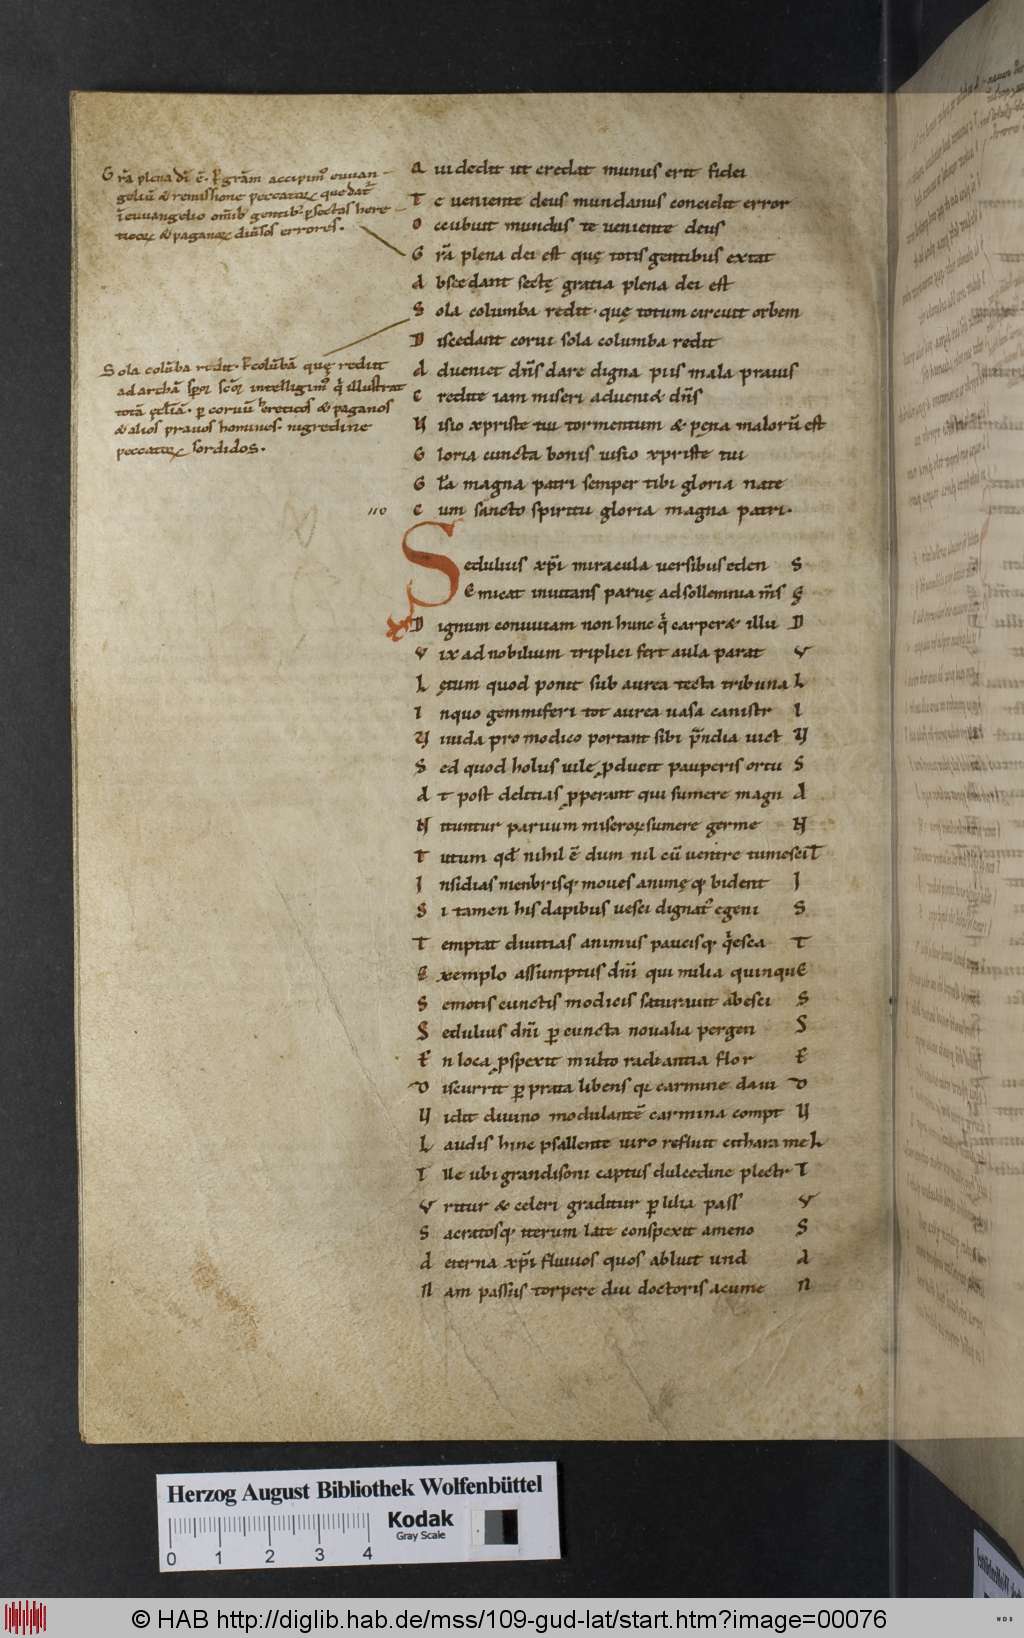 Gr̄a plena dī ē. Per grām accipim᷒ euuan
geliū & remissione peccatoꝝ que dat᷑
ī euuangelio omīb gentib᷒ psectas here
ticoꝝ & paganoꝝ diūsos errores.
Sola colūba redit. Per colūbā quę redut
ad archā spēr scōr intelligim᷒ q̄ illustrat
totā ęcłiā. ꝑ coruū hereticos & paganos
& alios prauos homines. nigredine
peccatoꝝ sordidos.
A ui dedit ut credat munus erit fidei
T e ueniente deus mundanus concidit error
O ccubuit mundus te ueniente deus
G r̄a plena dei est quę totis gentibus extat
A bscedant sectę gratia plena dei est
S ola columba redit. quę totum circuit orbem
D iscedant corui sola columba redit
A dueniet dn̄s dare digna pius mala prauis
C redite iam miseri adueni& dn̄s
U isio xpriste tui tormentum & pęna malorū est
G loria cuncta bonis uisio xpriste tui
G lr̄a magna patri semper tibi gloria nate
C um sancto spiritu gloria magna patri.
110
Sedulius xp̄i miracula uersibus eden S
E micat inuitans paruę ad sollemnia m̄s Ę
D ignum conuiuam non hunc q̄ carper& illu D
V ix ad nobilium triplici fert aula parat V
L ętum quod ponit sub aurea tecta tribuna L
I nquo gemmiferi tot aurea uasa canistr I
U iuida pro modico portant sibi p̄ndia uict U
S ed quod holus uile ꝓduett pauperis ortu S
A t post delitias ꝓperant qui sumere magn A
N ituntur paruum miseroꝝ sumere germe N
T utum qd̄ nihil ē dum nil cū uentre tumesci T
I nsidias menbrisq; moues animęq; bident I
S i tamen his dapibus uesci dignat᷑ egeni S
T emptat diuitias animus paucisq; q̄esca T
E xemplo assumptus dn̄i qui milia quinqu E
S emotis cunctis modicis saturauit ab esci S
S edulius dn̄i ꝑ cuncta noualia pergen S
E n loca ꝓspexit multo radiantia flor E
D iscurrit ꝑ prata libens q; carmine daui D
U idit diuino modulantē carmina compt U
L audis hinc psallente uiro refluit cithara me L
I lle ubi grandisoni captus dulcedine plectr I
V ritur & celeri graditur ꝑ lilia pass V
S acratosq; iterum late conspexit ameno S
A eterna xp̄i fluuios quos abluit und A
N am passus torpere diu doctoris acume N
Herzog August Bibliothek Wolfenbüttel
Kodak
Gray Scale
0 1 2 3 4
© HAB http://diglib.hab.de/mss/109-gud-lat/start.htm?image=00076